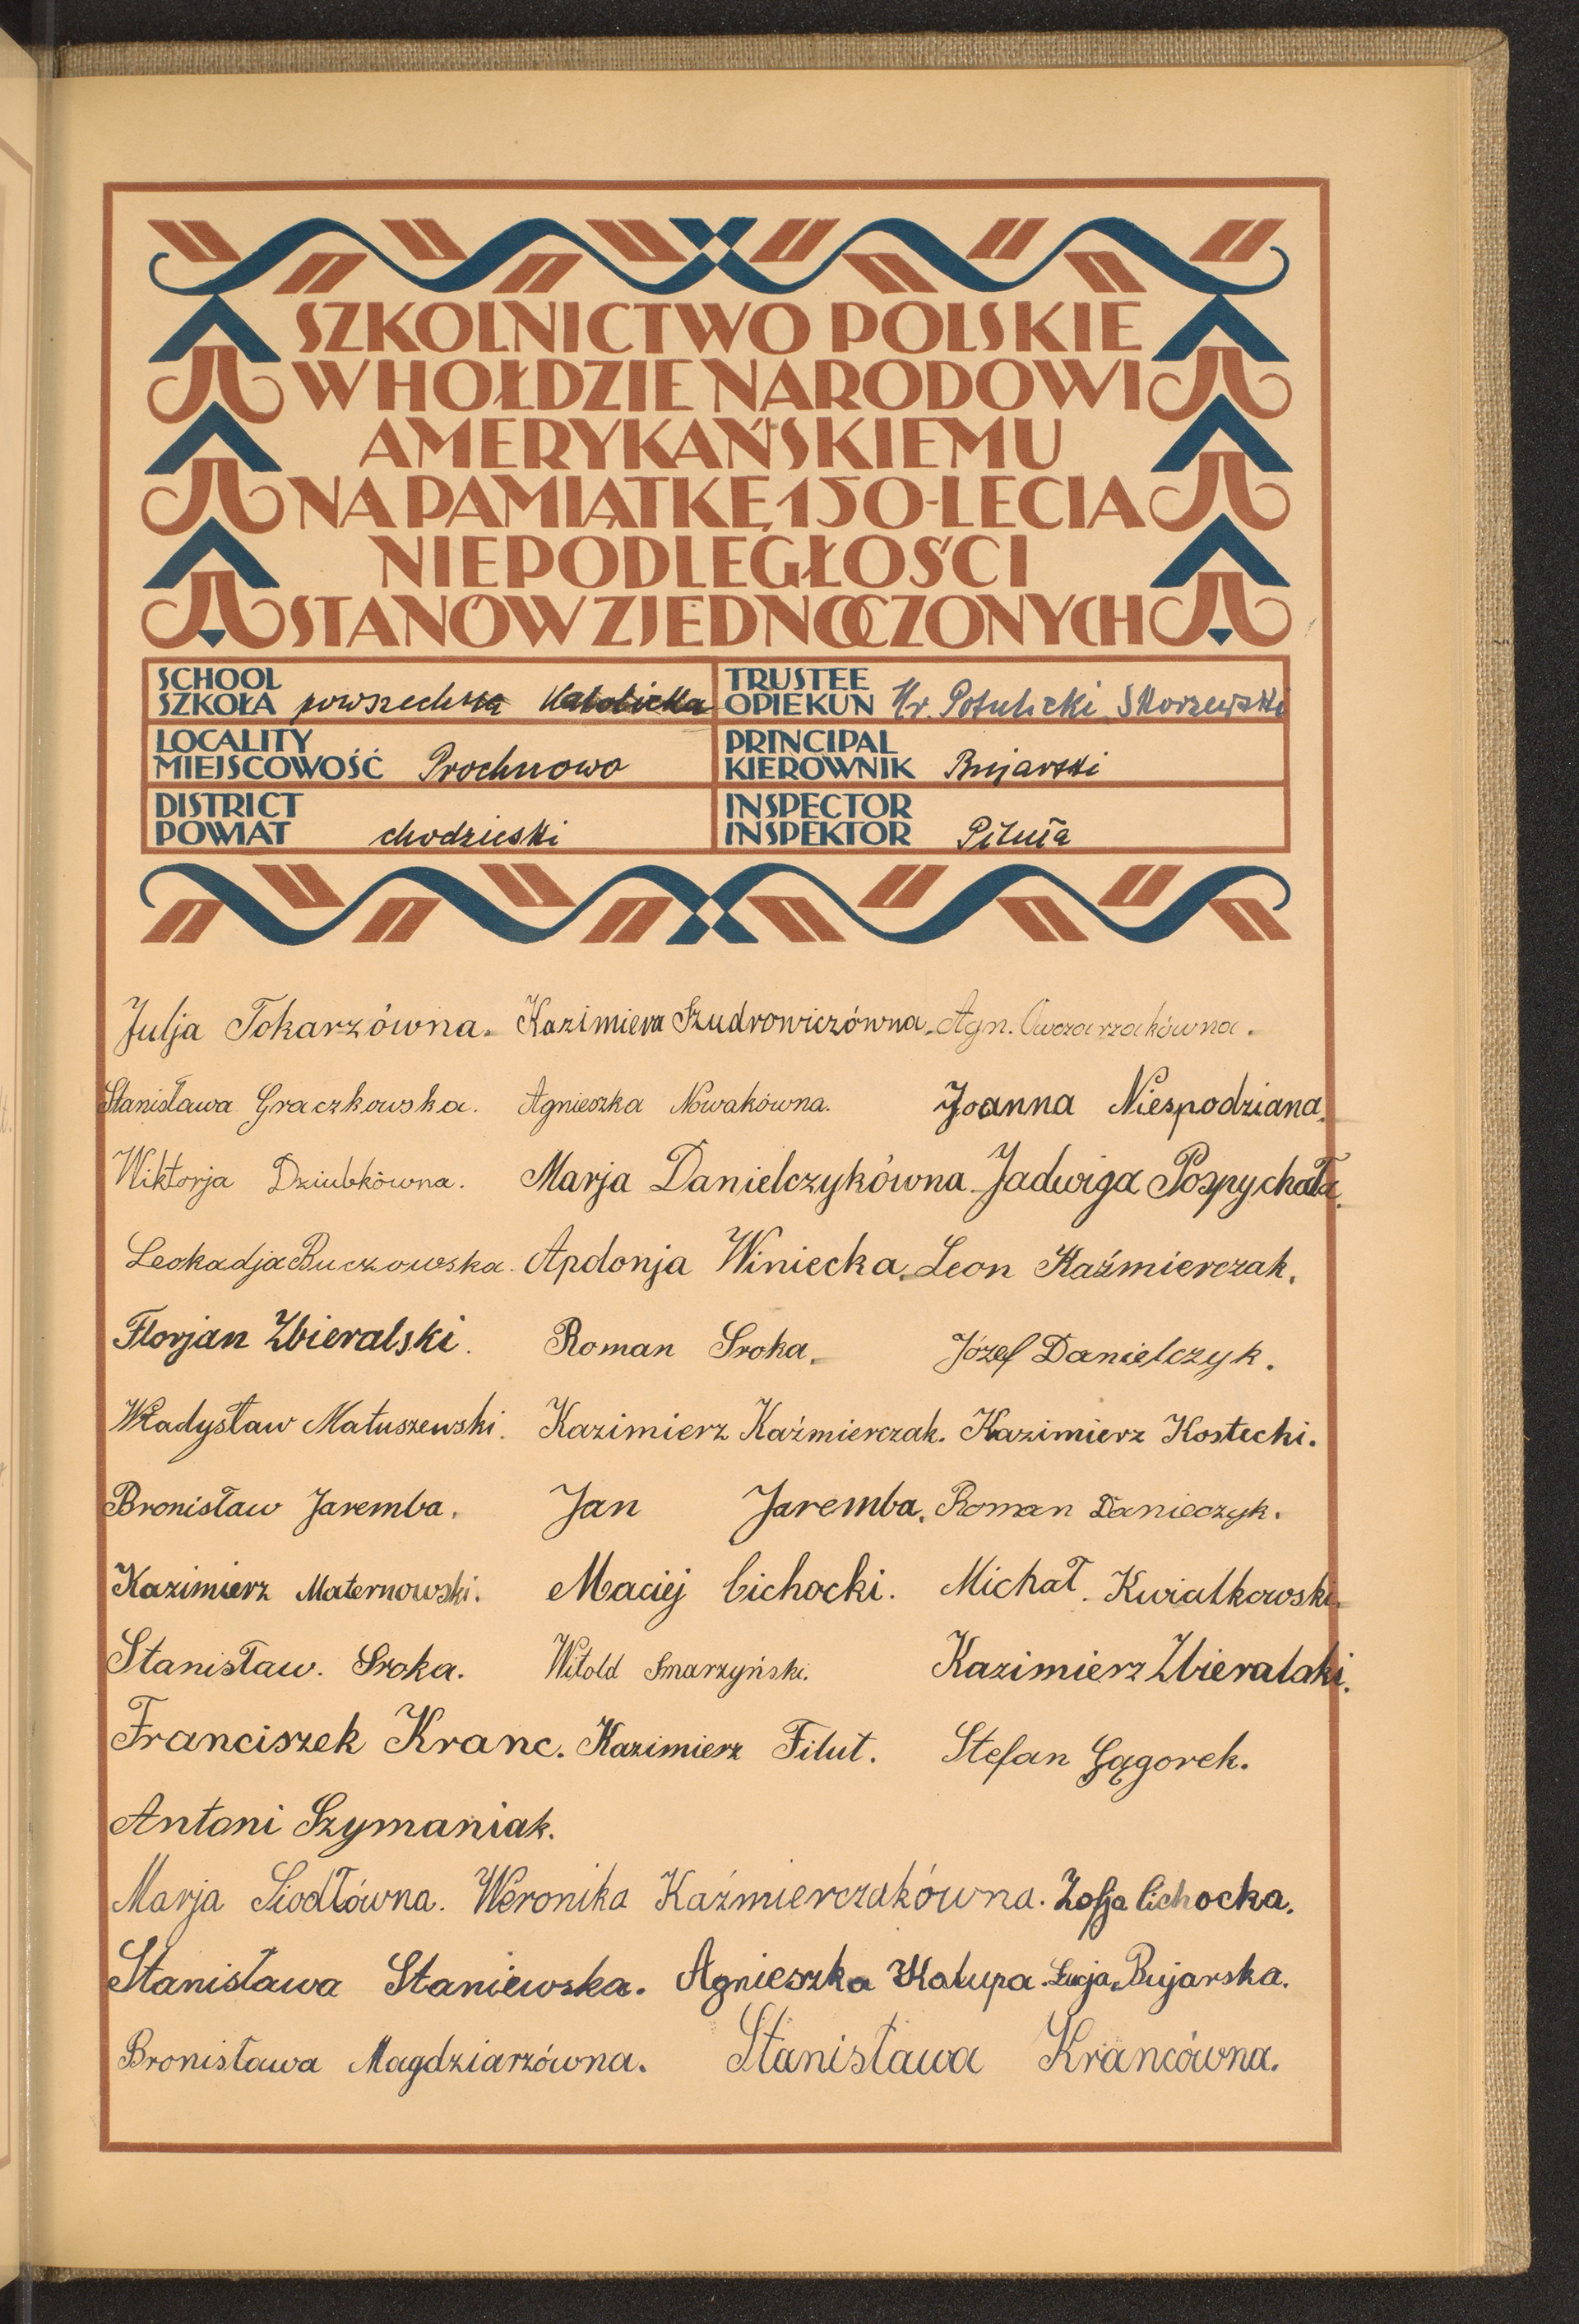 SZKOLNICTWO POLSKIE
W HOŁDZIE NARODOWI
AMERYKAŃSKIEMU
NA PAMIĄTKĘ 150-LECIA
NIEPODLEGŁOŚCI
STANÓW ZJEDNOCZONYCH
SCHOOL
SZKOŁA powszechna Katolicka
TRUSTEE
OPIEKUN Hr. Potulicki Skorzewski
LOCALITY
MIEJSCOWOŚĆ Prochnowo
PRINCIPAL
KIEROWNIK Bujarski
DISTRICT
POWIAT chodzieski
INSPECTOR
INSPEKTOR Pituła
Julja Tokarzówna. Kazimiera Szudrowiczówna. Agn. Owczarzakówna.
Stanisława Graczkowska. Agnieszka Nowakówna. Joanna Niespodziana.
Wiktorja Dziubkówna. Marja Danielczykówna Jadwiga Pospychała.
Leokadja Buczowska. Apolonja Winiecka. Leon Kaźmierczak.
Florjan Zbieralski. Roman Sroka. Józef Danielczyk.
Władysław Matuszewski. Kazimierz Kaźmierczak. Kazimierz Kostecki.
Bronisław Jaremba. Jan Jaremba. Roman Danieczyk.
Kazimierz Maternowski. Maciej Cichocki. Michał Kwiatkowski.
Stanisław. Sroka. Witold Smarzyński. Kazimierz Zbieralski.
Franciszek Kranc. Kazimierz Filut. Stefan Gągorek.
Antoni Szymaniak.
Marja Siodłówna. Weronika Kaźmierczakówna. Zofja Cichocka.
Stanisława Staniewska. Agnieszka Kałupa. Łucja Bujarska.
Bronisława Magdziarzówna. Stanisława Krancówna.